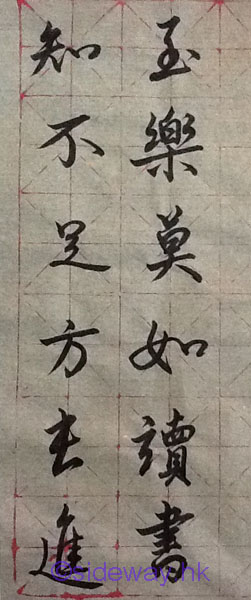 至樂莫如讀書
知不足方長進
©sideway.hk